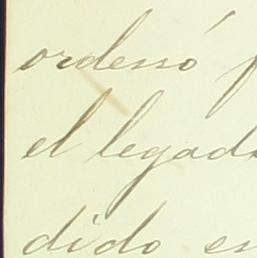 ordessó
el legad
dido es